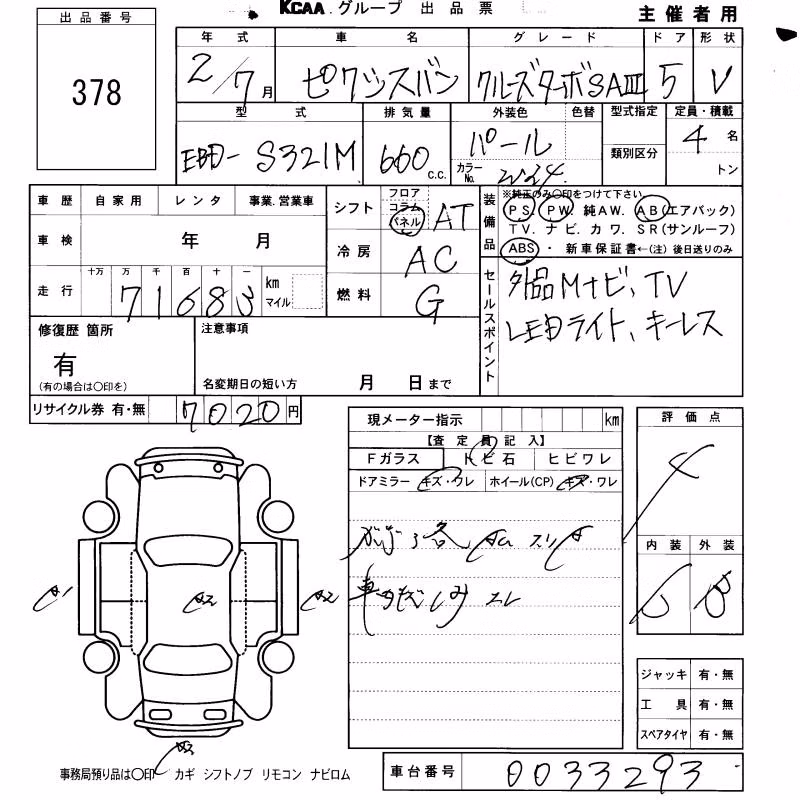 KCAA グループ 出品票
主催者用
出品番号
378
年式 車名 グレード ドア 形状
2/7月 ピクシスバン クルーズターボSAⅢ 5 V
型式 排気量 外装色 色替 型式指定 定員・積載
EBD-S321M 660 c.c. パール 4名
カラーNo. W24 類別区分 トン
車歴 自家用 レンタ 事業.営業車
シフト フロア コラム パネル AT
装備品 ※純正のみ○印をつけて下さい
PS. PW. 純AW. AB(エアバック)
TV. ナビ. カワ. SR(サンルーフ)
ABS・新車保証書←(注)後日送りのみ
車検 年 月
冷房 AC
走行 十万 万 千 百 十 一
71683 km マイル
燃料 G
セールスポイント
外品Mナビ、TV
LEDライト、キーレス
修復歴 箇所
有
(有の場合は○印を)
注意事項
名変期日の短い方 月 日まで
リサイクル券 有・無 7020円
現メーター指示 km
【査定員記入】
Fガラス トビ石 ヒビワレ
ドアミラー キズ・ワレ ホイール(CP) キズ・ワレ
評価点
4
内装 外装
B
A1 A2 A2
A2
ジャッキ 有・無
工具 有・無
スペアタイヤ 有・無
車台番号 0033293
事務局預り品は○印 カギ シフトノブ リモコン ナビロム